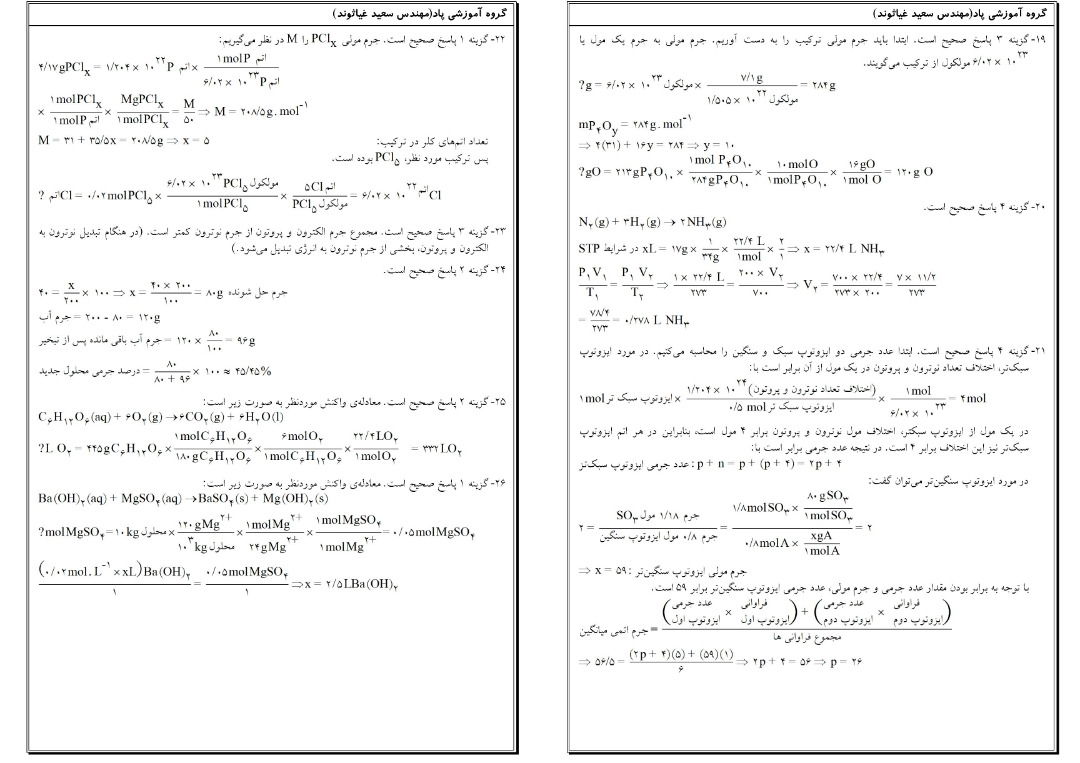 گروه آموزشی پاد(مهندس سعید غیاثوند)
۱۹- گزینه ۳ پاسخ صحیح است. ابتدا باید جرم مولی ترکیب را به دست آوریم. جرم مولی به جرم یک مول یا
۶/۰۲ × ۱۰^۲۳ مولکول از ترکیب می‌گویند.
?g = ۶/۰۲ × ۱۰^۲۳ مولکول × ۷/۱g / ۱/۵۰۵ × ۱۰^۲۲ مولکول = ۲۸۴g
mP₄Oy = ۲۸۴g.mol⁻¹
⇒ ۴(۳۱) + ۱۶y = ۲۸۴ ⇒ y = ۱۰
?gO = ۲۱۳gP₄O₁₀ × ۱mol P₄O₁₀ / ۲۸۴gP₄O₁₀ × ۱۰molO / ۱molP₄O₁₀ × ۱۶gO / ۱mol O = ۱۲۰g O
۲۰- گزینه ۴ پاسخ صحیح است.
N₂(g) + ۳H₂(g) → ۲NH₃(g)
STP در شرایط xL = ۱۷g × ۱ / ۳۴g × ۲۲/۴ L / ۱mol × ۲ / ۱ ⇒ x = ۲۲/۴ L NH₃
P₁V₁ / T₁ = P₁V₂ / T₂ ⇒ ۱ × ۲۲/۴ L / ۲۷۳ = ۲۰۰ × V₂ / ۷۰۰ ⇒ V₂ = ۷۰۰ × ۲۲/۴ / ۲۷۳ × ۲۰۰ = ۷ × ۱۱/۲ / ۲۷۳
= ۷۸/۴ / ۲۷۳ = ۰/۲۷۸ L NH₃
۲۱- گزینه ۴ پاسخ صحیح است. ابتدا عدد جرمی دو ایزوتوپ سبک و سنگین را محاسبه می‌کنیم. در مورد ایزوتوپ
سبک‌تر، اختلاف تعداد نوترون و پروتون در یک مول از آن برابر است با:
۱mol ایزوتوپ سبک تر × (اختلاف تعداد نوترون و پروتون) ۱/۲۰۴ × ۱۰^۲۴ / ۰/۵ mol ایزوتوپ سبک تر × ۱mol / ۶/۰۲ × ۱۰^۲۳ = ۴mol
در یک مول از ایزوتوپ سبکتر، اختلاف مول نوترون و پروتون برابر ۴ مول است، بنابراین در هر اتم ایزوتوپ
سبک‌تر نیز این اختلاف برابر ۴ است. در نتیجه عدد جرمی برابر است با:
عدد جرمی ایزوتوپ سبک‌تر : p + n = p + (p + ۴) = ۲p + ۴
در مورد ایزوتوپ سنگین‌تر می‌توان گفت:
۲ = جرم ۱/۱۸ مول SO₃ / جرم ۰/۸ مول ایزوتوپ سنگین = ۱/۸molSO₃ × ۸۰gSO₃ / ۱molSO₃ / ۰/۸molA × xgA / ۱molA = ۲
⇒ x = ۵۹ : جرم مولی ایزوتوپ سنگین‌تر
با توجه به برابر بودن مقدار عدد جرمی و جرم مولی، عدد جرمی ایزوتوپ سنگین‌تر برابر ۵۹ است.
جرم اتمی میانگین = (عدد جرمی ایزوتوپ اول × فراوانی ایزوتوپ اول) + (عدد جرمی ایزوتوپ دوم × فراوانی ایزوتوپ دوم) / مجموع فراوانی ها
⇒ ۵۶/۵ = (۲p + ۴)(۵) + (۵۹)(۱) / ۶ ⇒ ۲p + ۴ = ۵۶ ⇒ p = ۲۶
گروه آموزشی پاد(مهندس سعید غیاثوند)
۲۲- گزینه ۱ پاسخ صحیح است. جرم مولی PClx را M در نظر می‌گیریم:
۴/۱۷gPClx = ۱/۲۰۴ × ۱۰^۲۲ P اتم × ۱molP اتم / ۶/۰۲ × ۱۰^۲۳ P اتم
× ۱molPClx / ۱molP اتم × MgPClx / ۱molPClx = M / ۵۰ ⇒ M = ۲۰۸/۵g.mol⁻¹
تعداد اتم‌های کلر در ترکیب: M = ۳۱ + ۳۵/۵x = ۲۰۸/۵g ⇒ x = ۵
پس ترکیب مورد نظر، PCl₅ بوده است.
? اتم Cl = ۰/۰۲molPCl₅ × ۶/۰۲ × ۱۰^۲۳ مولکول PCl₅ / ۱molPCl₅ × ۵Cl اتم / مولکول PCl₅ = ۶/۰۲ × ۱۰^۲۲ اتم Cl
۲۳- گزینه ۳ پاسخ صحیح است. مجموع جرم الکترون و پروتون از جرم نوترون کمتر است. (در هنگام تبدیل نوترون به
الکترون و پروتون، بخشی از جرم نوترون به انرژی تبدیل می‌شود.)
۲۴- گزینه ۲ پاسخ صحیح است.
۴۰ = x / ۲۰۰ × ۱۰۰ ⇒ x = ۴۰ × ۲۰۰ / ۱۰۰ = ۸۰g جرم حل شونده
جرم آب = ۲۰۰ - ۸۰ = ۱۲۰g
جرم آب باقی مانده پس از تبخیر = ۱۲۰ × ۸۰ / ۱۰۰ = ۹۶g
درصد جرمی محلول جدید = ۸۰ / ۸۰ + ۹۶ × ۱۰۰ ≈ ۴۵/۴۵%
۲۵- گزینه ۲ پاسخ صحیح است. معادله‌ی واکنش موردنظر به صورت زیر است:
C₆H₁₂O₆(aq) + ۶O₂(g) → ۶CO₂(g) + ۶H₂O(l)
?L O₂ = ۴۴۵gC₆H₁₂O₆ × ۱molC₆H₁₂O₆ / ۱۸۰gC₆H₁₂O₆ × ۶molO₂ / ۱molC₆H₁₂O₆ × ۲۲/۴LO₂ / ۱molO₂ = ۳۳۲LO₂
۲۶- گزینه ۱ پاسخ صحیح است. معادله‌ی واکنش موردنظر به صورت زیر است:
Ba(OH)₂(aq) + MgSO₄(aq) → BaSO₄(s) + Mg(OH)₂(s)
?molMgSO₄ = ۱۰kg محلول × ۱۲۰gMg²⁺ / ۱۰^۳kg محلول × ۱molMg²⁺ / ۲۴gMg²⁺ × ۱molMgSO₄ / ۱molMg²⁺ = ۰/۰۵molMgSO₄
(۰/۰۲mol.L⁻¹ × xL)Ba(OH)₂ / ۱ = ۰/۰۵molMgSO₄ / ۱ ⇒ x = ۲/۵LBa(OH)₂